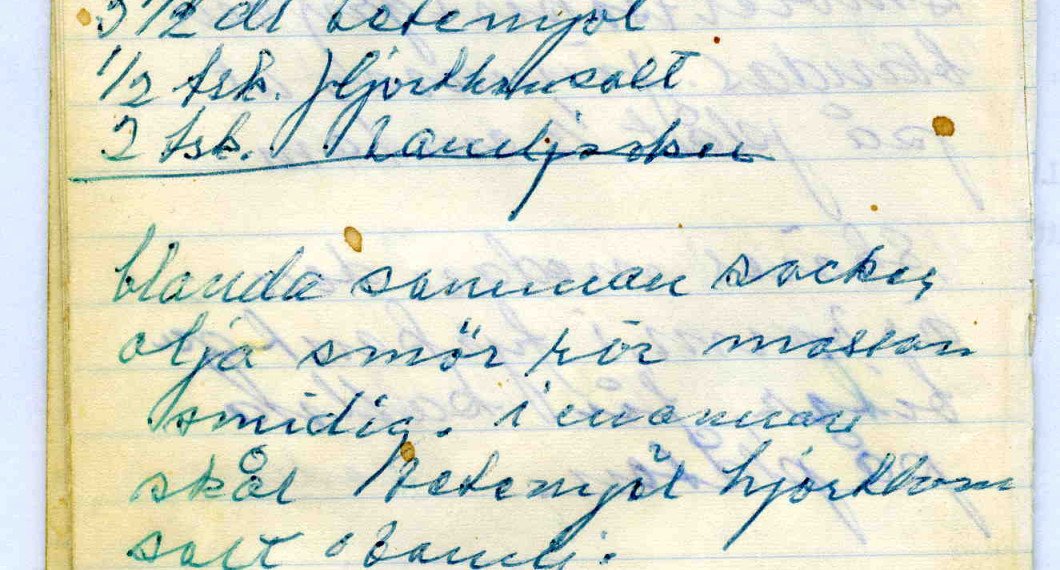 3 1/2 dl vetemjöl
1/2 tsk. Hjorthornsalt
2 tsk. vaniljsoker
blanda samman socker,
olja smör rör massan
smidig. i en annan
skål Vetemjöl hjorthorn
salt o vanilj.